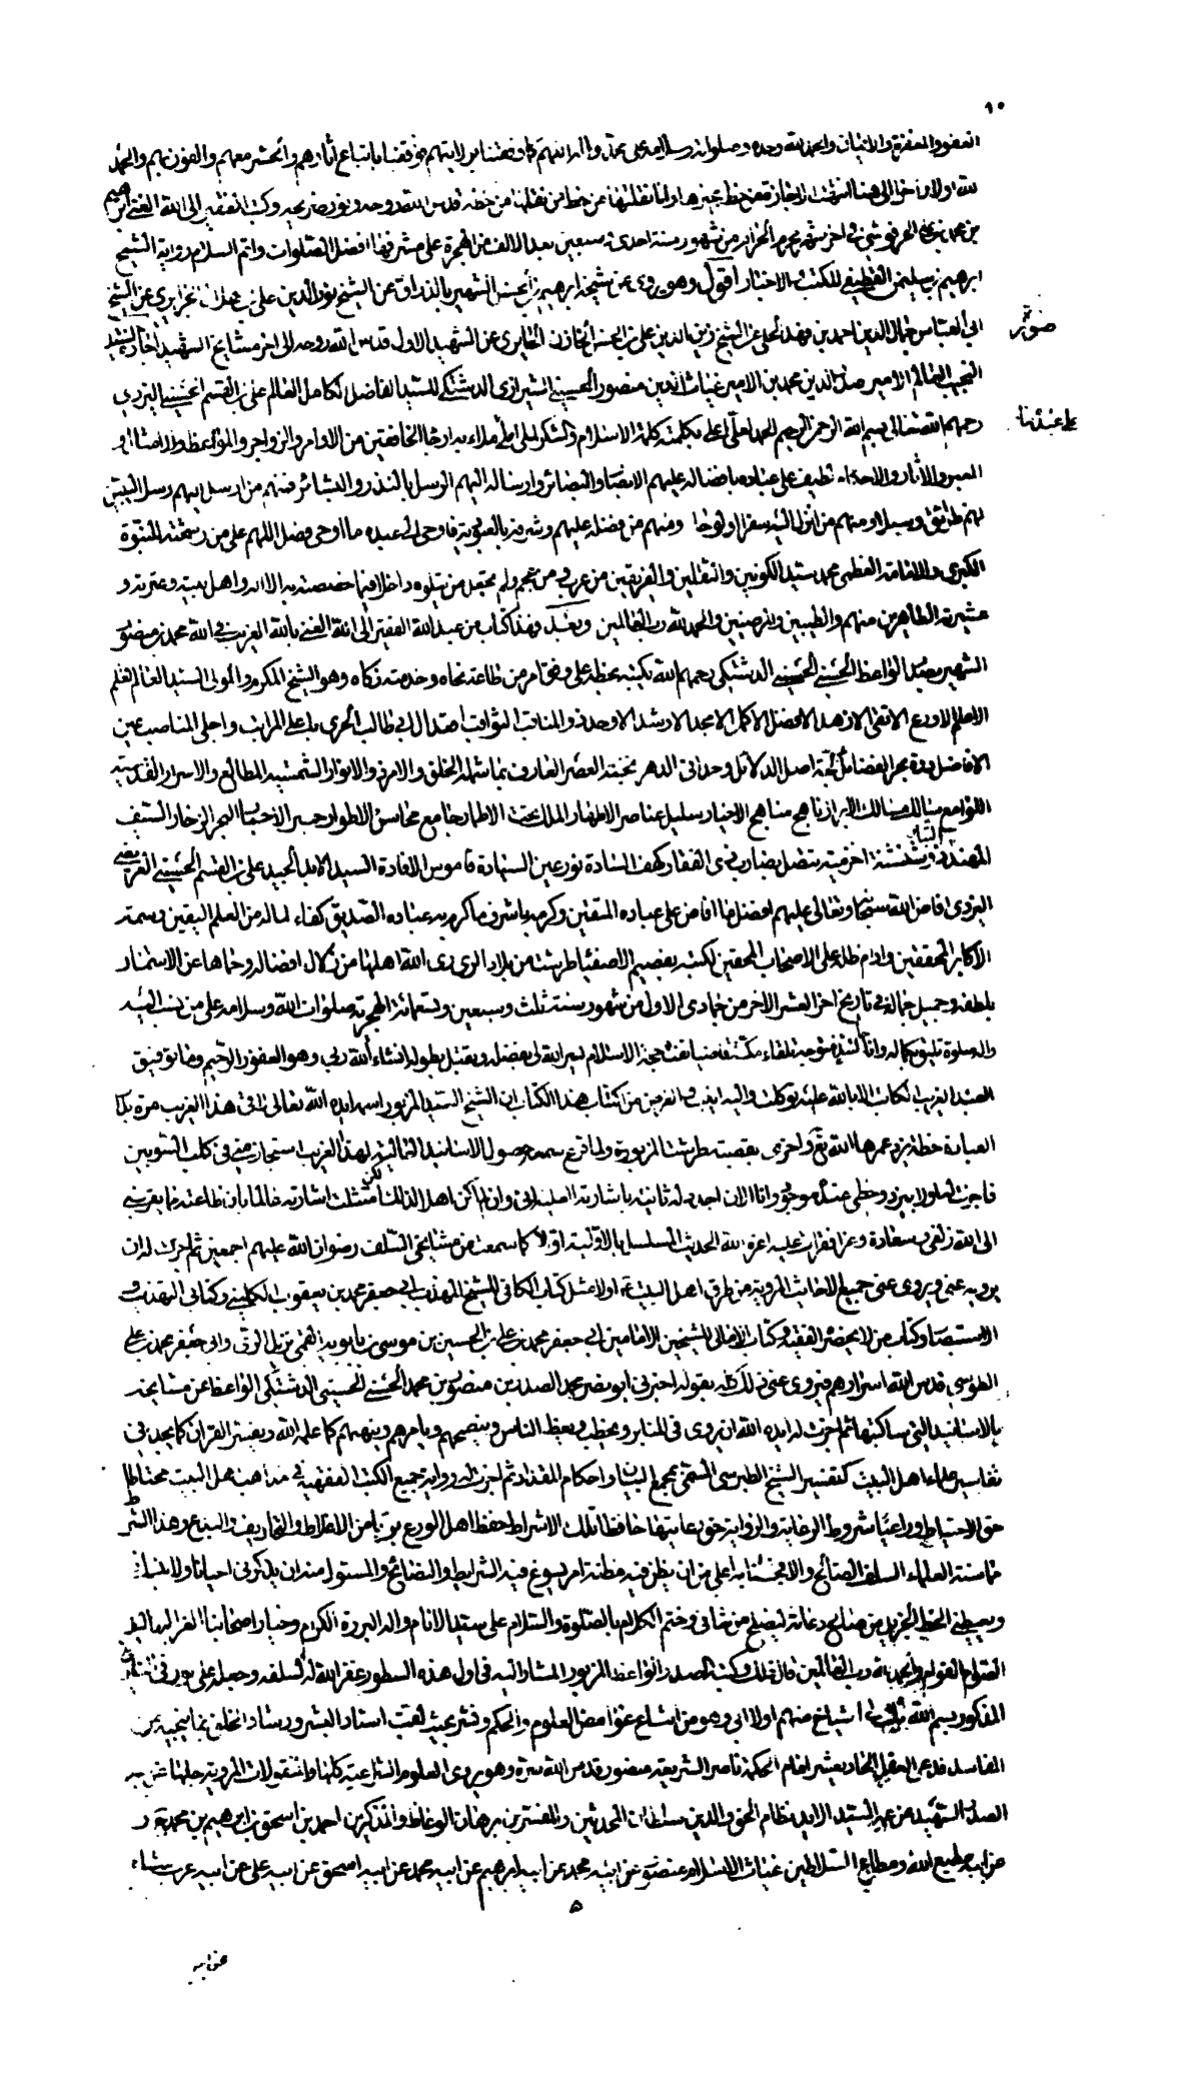 ١٠
العفو والمغفرة والامتنان والحمد لله وحده وصلواته على محمد واله وفقنا باتباع اثارهم والحشر معهم والفوز بهم والحمد
لله اولا واخرا الى هنا انتهت الاجازة من خط مجيزها وانا نقلتها من خط من نقلها من خطه قدس الله روحه ونور ضريحه وكتب الفقير الى الله الغني ابرهيم
بن محمد بن علي الحرفوشي في اخر شهر محرم الحرام من شهور سنة احدى وسبعين بعد الالف من الهجرة على مشرفها افضل الصلوات واتم السلام رواية الشيخ
ابرهيم بن سليمن القطيفي للكتب والاخبار اقول وهو يروي عن شيخه ابرهيم بن الحسن الشهير بالذراق عن الشيخ نور الدين علي بن هلال الجزايري عن الشيخ
ابي العباس جمال الدين احمد بن فهد الحلي عن الشيخ زين الدين علي بن الحسن الخازن الحايري عن الشهيد الاول قدس الله روحه الى اخر مشايخ الشهيد اجازة السيد
صورة
النجيب العالم الامير صدر الدين محمد بن الامير غياث الدين منصور الحسيني الشيرازي الدشتكي للسيد الفاضل الكامل العالم علي بن القسم الحسيني اليزدي
رحمهم الله تعالى بسم الله الرحمن الرحيم الحمد لله على كلمة الاسلام والشكر من الاوامر والزواجر والمواعظ والامثال و
العبر والاثار والاحداء لطيف على عباده بافضاله عليهم الابصار والبصائر وارساله اليهم الرسل بالنذر والبشائر فمنهم من ارسل اليهم رسل النبيين
لهم طرائق وسبلا ومنهم من انزل اليه سفرا ولوحا ومنهم من فضله عليهم وشرفه بالعبودية فاوحى الى عبده ما اوحى فصل اللهم على من رشحته للنبوة
الكبرى والامامة العظمى محمد سيد الكونين والثقلين والفريقين من عرب ومن عجم ولم تجعل من يتلوه داخلا فيما خصصته به الا اله واهل بيته وعترته و
عشيرته الطاهرين منهم والطيبين والمرضيين والحمد لله رب العالمين وبعد فهذا كتاب من عبد الله الفقير الى الله الغني بالله الغريب في الله محمد بن منصور
الشهير بصدر الواعظ الحسني الحسيني الدشتكي رحمهم الله يكتبه بخطه على وفق امر من طاعته نجاة وخدمته زكاة وهو الشيخ المكرم والمولى السيد العالم العلم
الاعلم الاورع الاتقى الازهد الافضل الاكمل الامجد الارشد الاوحد ذو المناقب الثواقب اصل ال ابي طالب الحري باعلى المراتب واجلى المناصب عين
الافاضل ودرة بحر الفضائل حجة اصل الدلائل وحداني الدهر نخبة العصر العارف بما شمله الخلق والامر ذو الانوار الشمسية المطالع والاسرار القدسية
اللوامع سالك مسالك الابرار ناهج مناهج الاخيار سليل عناصر الاطهار الملك تحت الاطمار جامع محاسن الاطوار حبر الاحبار البحر الزخار السيف
المهند البتار ذو شنشنة اخزمية بنصل يضارب ذي الفقار كهف السادة نور عين السيادة قاموس الافادة السيد الايد الجيد علي بن القسم الحسيني العريضي
اليزدي افاض الله سبحانه وتعالى عليهم افضل ما افاض على عباده المتقين وكرمه باشرف ما كرم به عباده الصديق كفاء لماله من العلم اليقين وسمته
الاكابر المحققين وادام ظله على الاصحاب المحقين لكتبه بقصيم الاصفياء طرشت من بلاد الري رعى الله اهلها من زلال افضاله وحاها عن الاستمار
بلطفه وجميل جماله في تاريخ اخر العشر الاخر من جمادى الاول من شهور سنة ثلث وسبعين وتسعمائة الهجرية صلوات الله وسلامه على من نسب اليه
واله صلوة تليق بكماله وانا متوجه تلقاء مكة قاضيا تفث حجة الاسلام يسر الله لي بفضله ويقبل بطوله انشاء الله ربي وهو الغفور الرحيم وما توفيق
العبد الغريب الكاتب الا بالله عليه توكلت واليه انيب والغرض من كتاب هذا الكتاب ان الشيخ السيد المزبور اسمه ايده الله تعالى اتى هذا الغريب مرة بدار
العبادة خطة يزد عمرها الله تعالى واخرى بقصبة طرشت المزبورة ولما قرع سمعه وصول الاسانيد العالية لهذا الغريب استجاز مني في كلت النوبتين
فاجزت له اولا بيزد وخطي عنده موجود وانا الان اجدد له ثانية باشارته العلية اني وان لم اكن اهلا لذلك لكن امتثلت اشارته علما بان طاعته مما يقربني
الى الله زلفى وسعادة وعزا فقرات عليه اعزه الله الحديث المسلسل بالاولية اولا كما سمعت من مشايخي السلف رضوان الله عليهم اجمعين ثم اجزت له ان
يرويه عني ويروي عني جميع الاحاديث المروية من طرق اهل البيت اولا مثل كتاب الكافي للشيخ المهذب ابي جعفر محمد بن يعقوب الكليني وكتابي التهذيب و
الاستبصار وكتاب من لا يحضره الفقيه وكتاب الامالي للشيخين الامامين ابي جعفر محمد بن علي بن الحسين بن موسى بن بابويه القمي نزيل الري وابي جعفر محمد بن علي
الطوسي قدس الله اسرارهم فيروي عني ذلك كله بقوله اخبرني ابو نصر محمد الصدر بن منصور بن محمد الحسني الحسيني الدشتكي الواعظ عن مشايخه
بالاسانيد التي ساكتبها ثم اجزت له ايده الله ان يروي في المنابر ويخطب ويعظ الناس وينصحهم ويامرهم وينهيهم كما علمه الله ويفسر القران كما يجد في
تفاسير علماء اهل البيت كتفسير الشيخ الطبرسي المسمى بمجمع البيان واحكام المقداد ثم اجزت له رواية جميع الكتب الفقهية في مذاهب اهل البيت محتاطا
حق الاحتياط وراعيا شروط الرعاية والرواية حق رعايتها حافظا تلك الاشراط حفظ اهل الورع بريا من الاغلاط والتحاريف والبدع وهذا الشرط
مما سنه العلماء السلف الصالح والا فجنابه اعلى من ان يظن فيه مظنة امر يسوغ فيه الشرايط والنصائح والمسئول منه ان يذكرني احيانا ولا ينساني
ويعطيني الحظ الجزيل من صالح دعائه ليصلح من شاني وختم الكلام بالصلوة والسلام على سيد الانام واله البررة الكرام وخيار اصحابنا الغر الميامين
القوام والحمد لله رب العالمين قال ذلك وكتبه الصدر الواعظ المزبور المشار اليه في اول هذه السطور غفر الله له ولسلفه وجعله على نور في
المذكور بسم الله اشياخ منهم اولا ابي وهو من اشاع غوامض العلوم والحكم ونشر بحيث لقب استاد البشر ورشاد الخلق بما ينجيه من
المفاسد فدعي العقل الحادي عشر امام الحكمة ناصر الشريعة منصور قدس الله سره وهو يروي العلوم الشرعية كلها والمنقولات المروية جلها عن ابيه
الصدر الشهيد عن عمه السيد الايد نظام الحق والدين سلطان المحدثين والمفسرين برهان الوعاظ والمذكرين احمد بن اسحق بن ابرهيم بن محمد و
عن ابيه مطيع الله ومطاع السلاطين غياث الاسلام منصور عن ابيه محمد عن ابيه ابرهيم عن ابيه محمد عن ابيه اسحق عن ابيه علي عن ابيه عربشاه
عن ابيه